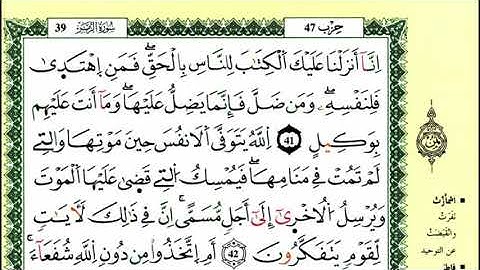 حِزْب 47 سُورَةُ الزُّمَر 39
اِنَّآ أَنزَلْنَا عَلَيْكَ اَ۬لْكِتَٰبَ لِلنَّاسِ بِالْحَقِّۖ فَمَنِ اِ۪هْتَد۪ىٰ
فَلِنَفْسِهِۦۖ وَمَن ضَلَّ فَإِنَّمَا يَضِلُّ عَلَيْهَاۖ وَمَآ أَنتَ عَلَيْهِم
بِوَكِيلٍ 41 اِ۬للَّهُ يَتَوَفَّى اَ۬لَانفُسَ حِينَ مَوْتِهَا وَالتِے
لَمْ تَمُتْ فِے مَنَامِهَاۖ فَيُمْسِكُ اُ۬لتِے قَض۪ىٰ عَلَيْهَا اَ۬لْمَوْتَ
وَيُرْسِلُ اُ۬لُاخْر۪ىٰٓ إِلَىٰٓ أَجَلٖ مُّسَمّىًۚ اِنَّ فِے ذَٰلِكَ لَأٓيَٰتٖ
لِّقَوْمٖ يَتَفَكَّرُونَ 42 أَمِ اِ۪تَّخَذُواْ مِن دُونِ اِ۬للَّهِ شُفَعَآءَۖ
اشْمَأَزَّتْ
نَفَرَتْ
وانْقَبَضَتْ
عن التوحيد
فاطر